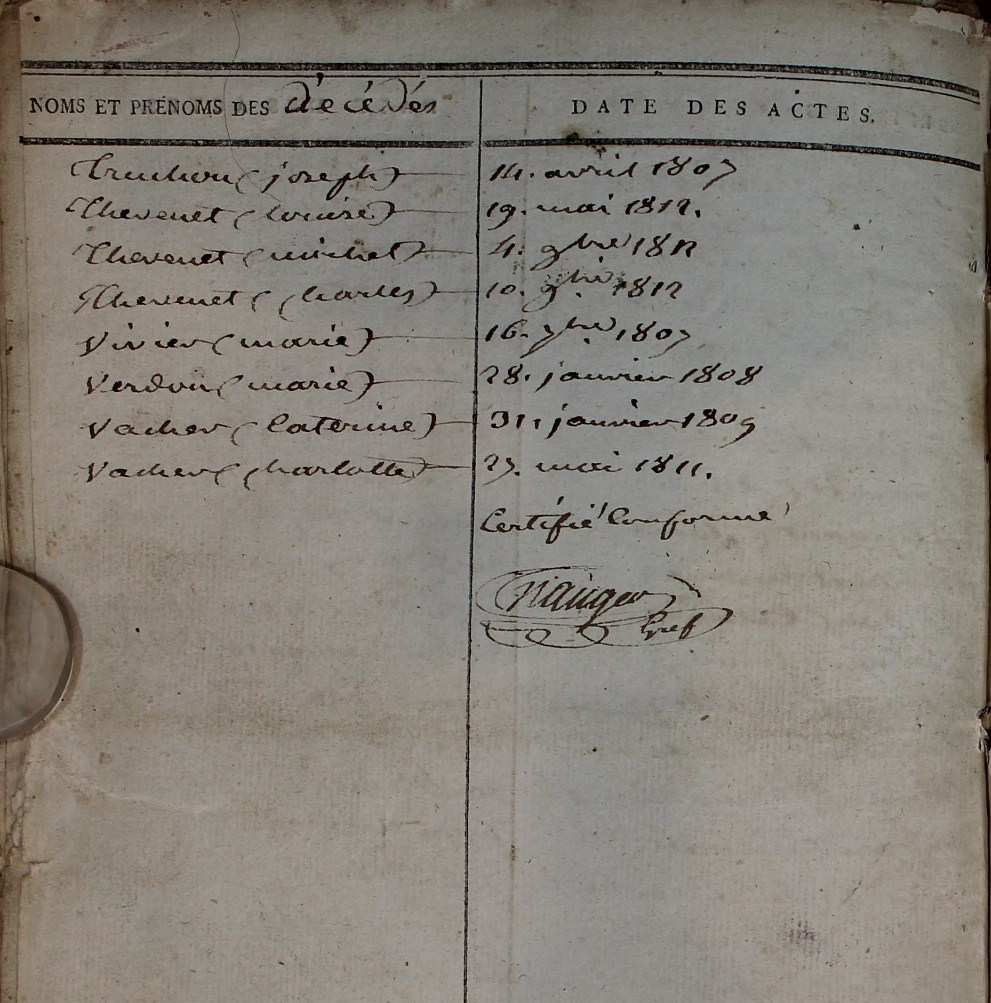 NOMS ET PRÉNOMS DES décédés DATE DES ACTES.
Truchon (joseph) 14. avril 1807
Thevenet (louise) 19. mai 1812.
Thevenet (michel) 4. 9bre 1812
Thevenet (charles) 10. 9bre 1812
Vivier (marie) 16. 7bre 1807
Verdon (marie) 28. janvier 1808
Vacher (Caterine) 31. janvier 1809
Vacher (charlotte) 27. mai 1811.
Certifié Conforme
Gref